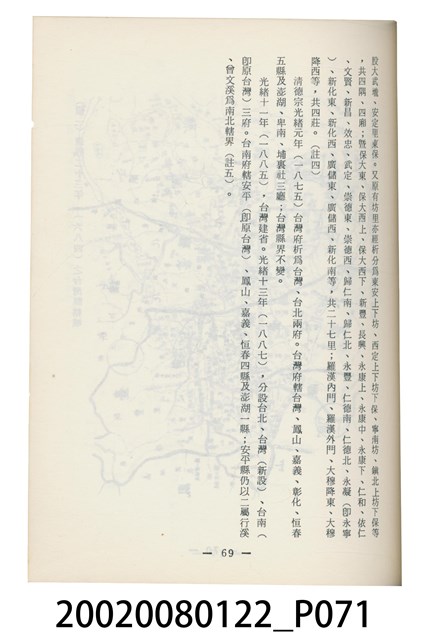 股大武壠、安定里東保。又原有坊里亦經析分爲東安上下坊、西定上下坊下保、寧南坊、鎮北上坊下保等
，共四隅、四廂；暨保大東、保大西上、保大西下、新豐、長興、永康上、永康中、永康下、仁和、依仁
、文賢、新昌、效忠、武定、崇德東、崇德西、歸仁南、歸仁北、永豐、仁德南、仁德北、永凝（即永寧
）、新化東、新化西、廣儲東、廣儲西、新化南等，共二十七里；羅漢內門、羅漢外門、大穆降東、大穆
降西等，共四莊。（註四）
清德宗光緒元年（一八七五）台灣府析爲台灣、台北兩府。台灣府轄台灣、鳳山、嘉義、彰化、恒春
五縣及澎湖、卑南、埔裏社三廳；台灣縣界不變。
光緒十一年（一八八五），台灣建省。光緒十三年（一八八七），分設台北、台灣（新設）、台南（
卽原台灣）三府。台南府轄安平（卽原台灣）、鳳山、嘉義、恒春四縣及澎湖一縣；安平縣仍以二屬行溪
、曾文溪爲南北轄界（註五）。
— 69 —
20020080122_P071